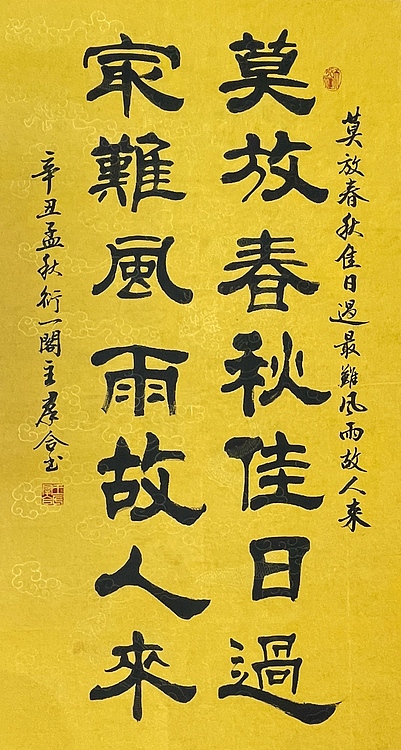 莫放春秋佳日過
冣難風雨故人來
莫放春秋佳日過最難風雨故人来
辛丑孟秋衍一閣主群合书